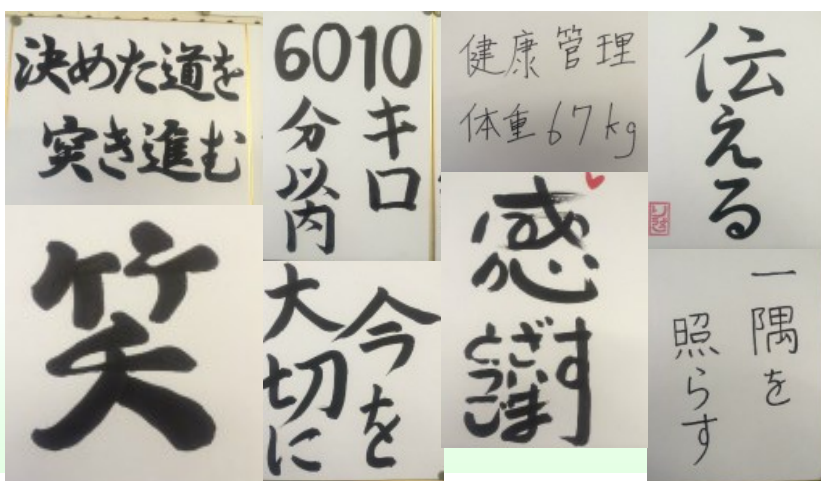 決めた道を
突き進む
10キロ
60分以内
健康管理
体重67kg
伝える
笑
今を
大切に
感謝
一隅を
照らす